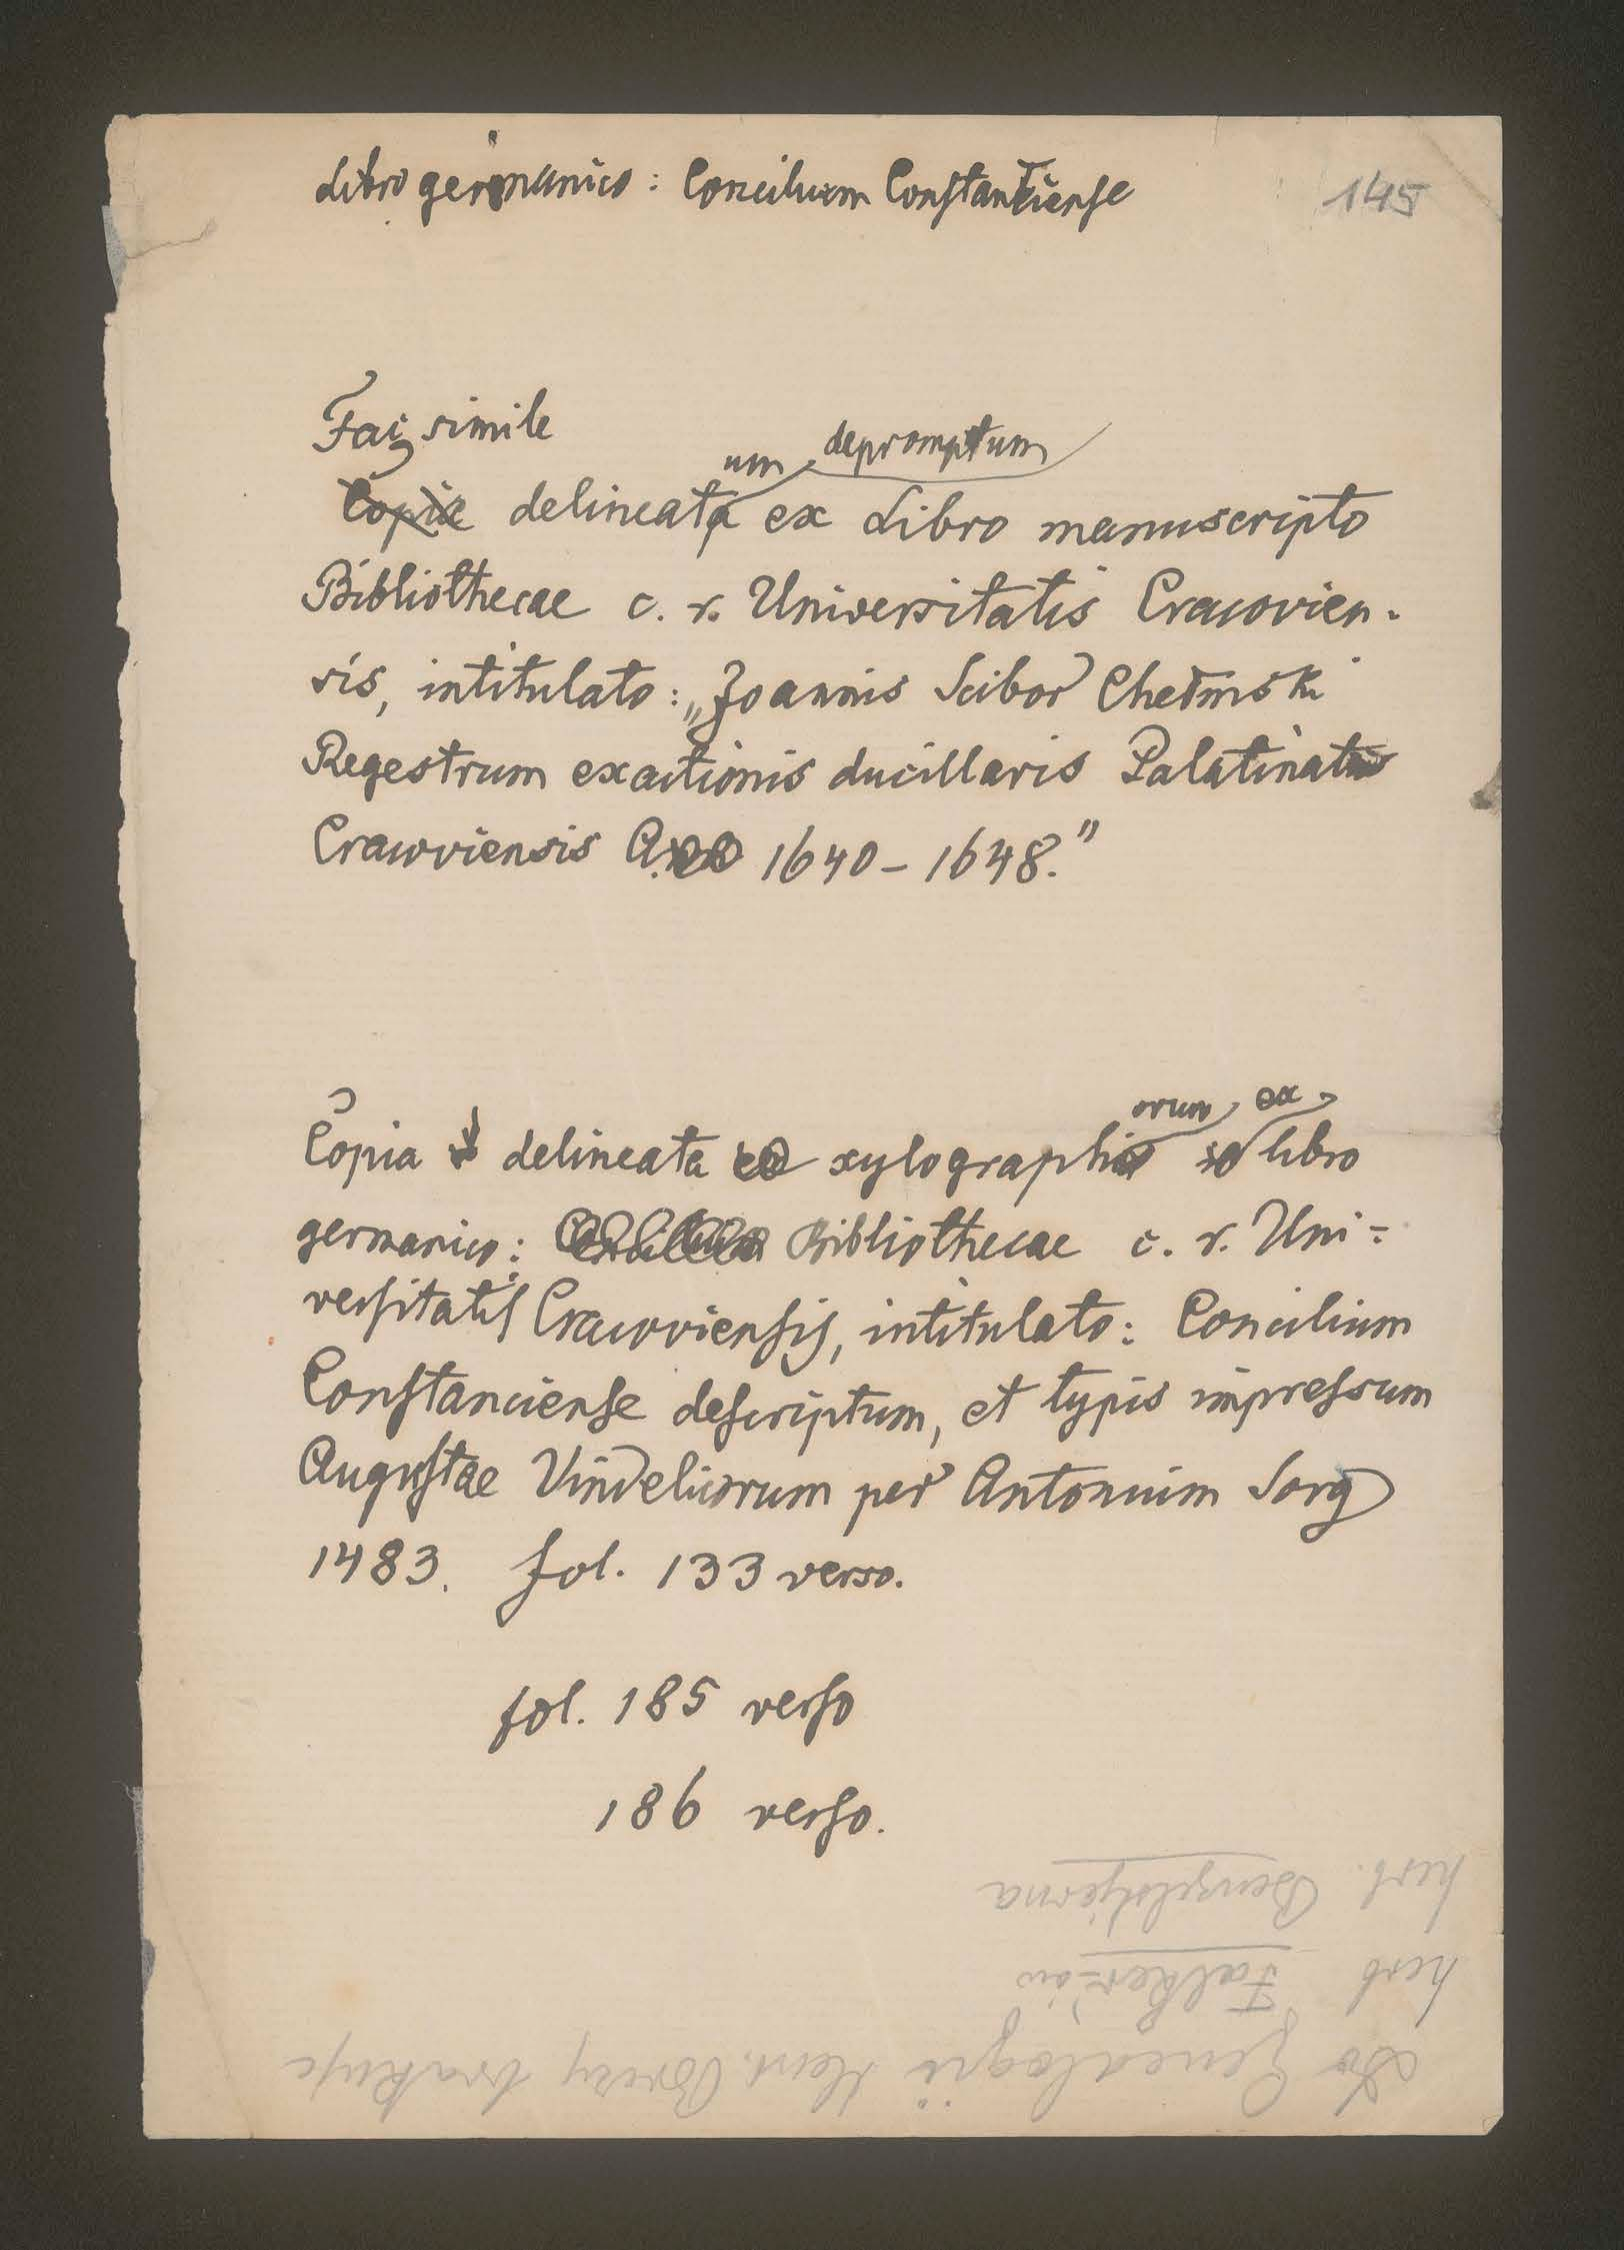 Libro germanico: Concilium Constantiense
145
Facsimile
um depromptum
Copia delineata ex Libro manuscripto
Bibliothecae c. r. Universitatis Cracovien-
sis, intitulato: „Joannis Scibor Chełmski
Regestrum exactionis ducillaris Palatinatus
Cracoviensis A. 1640 – 1648."
orum ex
Copia delineata xylographi libro
germanico: Bibliothecae c. r. Uni-
versitatis Cracoviensis, intitulato: Concilium
Constanciense descriptum, et typis impressum
Augustae Vindelicorum per Antonium Sorg
1483. fol. 133 verso.
fol. 185 verso
186 verso.
Do Genealogii Herb. brakuje
herb Falken
herb. Benzelstjerna